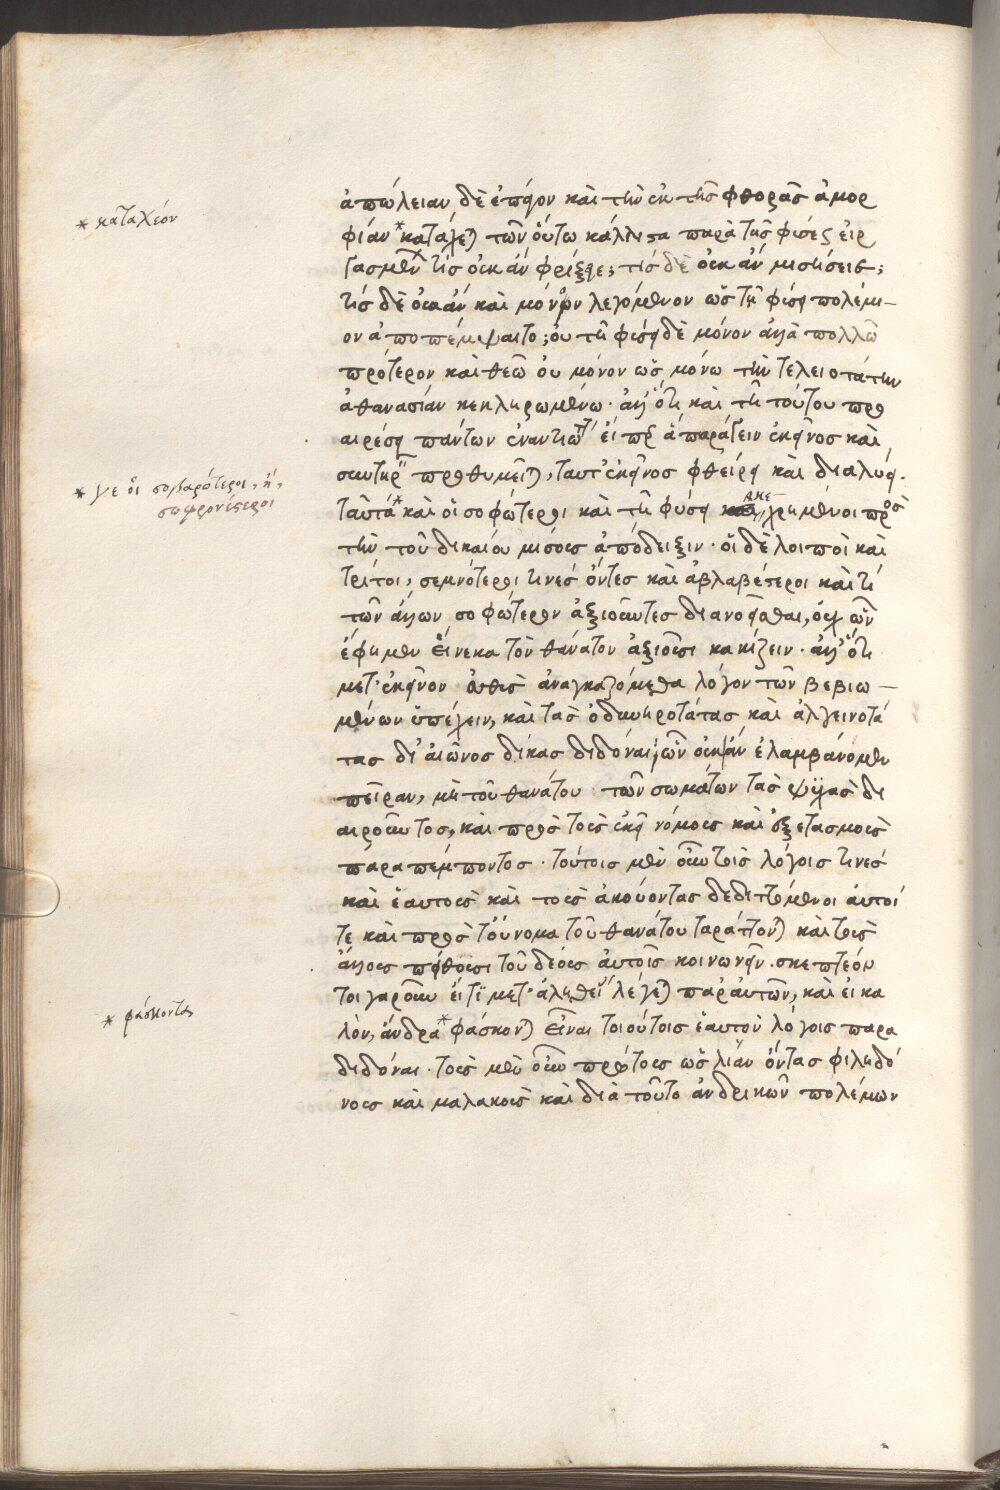 * κᾶταχέόν
ἀπώλειαν δὲ ἐπάγον καὶ τὴν ἐκ τῆς φθορᾶς ἀμορ
φίαν * καταχεῖται τῶν οὕτω κάλλιστα παρὰ τῆς φύσεως εἰρ
γασμένων τίς οὐκ ἂν φρίξειε; τίς δὲ οὐκ ἂν μισήσειε;
τίς δὲ οὐκ ἂν καὶ μόνον λεγόμενον ὡς τῇ φύσει πολέμι-
ον ἀποπέμψαιτο; οὐ τῇ φύσει δὲ μόνον ἀλλὰ πολλῶ
πρότερον καὶ θεῶ οὐ μόνον ὡς μόνω τὴν τελειοτάτην
ἀθανασίαν κεκληρωμένω. ἀλλ' ὅτι καὶ τῇ τούτου προ
αιρέσει πάντων ἐναντιώτ εἰ παράγειν ἐκεῖνος καὶ
σωτηρ προθυμεῖται, ταῦτ' ἐκεῖνος φθείρει καὶ διαλύει.
* γε οἱ σοβαρότεροι, ἢ,
σωφρονέστεροι
ταῦτά * καὶ οἱ σοφώτεροι καὶ τῇ φύσει χρημένοι πρὸς
τὴν τοῦ δικαίου μίσους ἀπόδειξιν. οἱ δὲ λοιποὶ καὶ
τρίτοι, σεμνότεροι τινὲς ὄντες καὶ ἀβλαβέστεροι καί τι
τῶν ἄλλων σοφώτερον ἀξιοῦντες διανοεῖσθαι, οὐχ ὧν
ἔφημεν εἵνεκα τὸν θάνατον ἀξιοῦσι κακίζειν. ἀλλ' ὅτι
μετ' ἐκεῖνον αὖθις ἀναγκαζόμεθα λόγον τῶν βεβιω-
μένων ὑπέχειν, καὶ τὰς ὀδυνηροτάτας καὶ ἀλγεινοτά
τας δι' αἰῶνος δίκας διδόναι, ὧν οὐκ ἂν ἐλαμβάνομεν
πεῖραν, μὴ τοῦ θανάτου τῶν σωμάτων τὰς ψυχὰς δι
αιροῦντος, καὶ πρὸς τοὺς ἐκεῖ νόμους καὶ ἐξετασμοὺς
παραπέμποντος. τούτοις μὲν οὖν τοῖς λόγοις τινὲς
καὶ ἑαυτοὺς καὶ τοὺς ἀκούοντας δεδιττόμενοι αὐτοί
τε καὶ πρὸς τοὔνομα τοῦ θανάτου ταράττονται καὶ τοὺς
ἄλλους πείθουσι τοῦ δέους αὐτοῖς κοινωνεῖν. σκεπτέον
τοιγαροῦν εἴ τι μετ' ἀληθείας λέγεται παρ' αὐτῶν, καὶ εἰ κα
* φάσκοντας
λὸν, ἄνδρα * φάσκονται εἶναι τοιούτοις ἑαυτὸν λόγοις παρα
διδόναι. τοὺς μὲν οὖν πρώτους ὡς λίαν ὄντας φιληδό
νους καὶ μαλακοὺς καὶ διὰ τοῦτο ἀνδρικῶν πολέμων